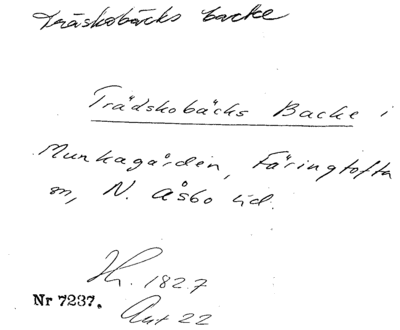 Träskobäcks backe
Trädskobäcks Backe i
Munkagården, Färingtofta
sn, N. Åsbo hd.
1827
Nr 7237.
Akt 22